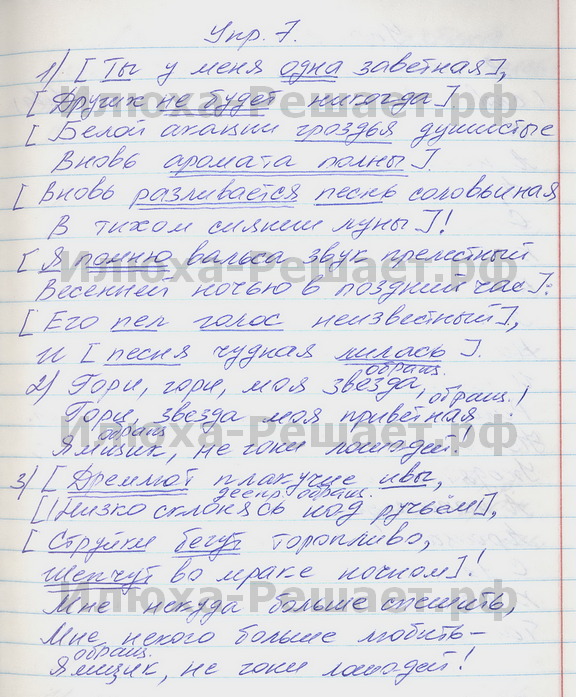 Упр. 7.
1) [Ты у меня одна заветная],
[Другик не будет никогда].
[Белой акации гроздья душистые
Вновь аромата полны].
[Вновь разливается песнь соловьиная
В тихом сиянии луны]!
[Я помню вальса звук прелестный
Весенней ночью в поздний час]:
[Его пел голос неизвестный],
и [песня чудная лилась].
обращ.
2) Гори, гори, моя звезда,
обращ.
Гори, звезда моя приветная!
обращ
Ямщик, не гони лошадей!
3) [Дремлют плакучие ивы,
деепр. обращ.
[|Низко склонясь над ручьём|],
[Струйки бегут торопливо,
Шепчут во мраке ночном]!
Мне некуда больше спешить,
Мне некого больше любить –
обращ.
Ямщик, не гони лошадей!
Илюха-Решает.рф
Илюха-Решает.рф
Илюха-Решает.рф
Илюха-Решает.рф
Илюха-Решает.рф